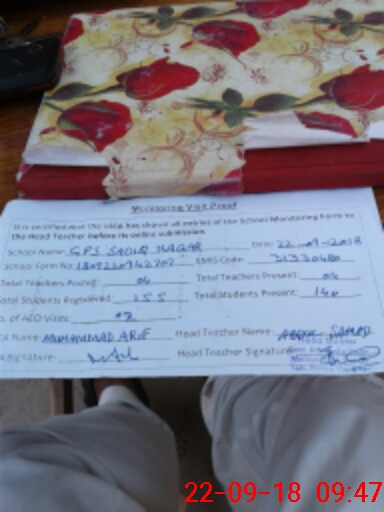 Monitoring Visit Proof
It is certified that the MEA has shared all entries of the School Monitoring Form to
the Head Teacher before its online submission.
School Name: GPS SADIQ NAGAR Date: 22-09-2018
School Form No. EMIS Code:
Total Teachers Posted: 04 Total Teachers Present: 04
Total Students Registered: 155 Total Students Present: 140
No. of AEO Visits: 02
MEA Name: MUHAMMAD ARIF Head Teacher Name: ABDUL SAMAD
MEA Signature: Head Teacher Signature
22-09-18 09:47